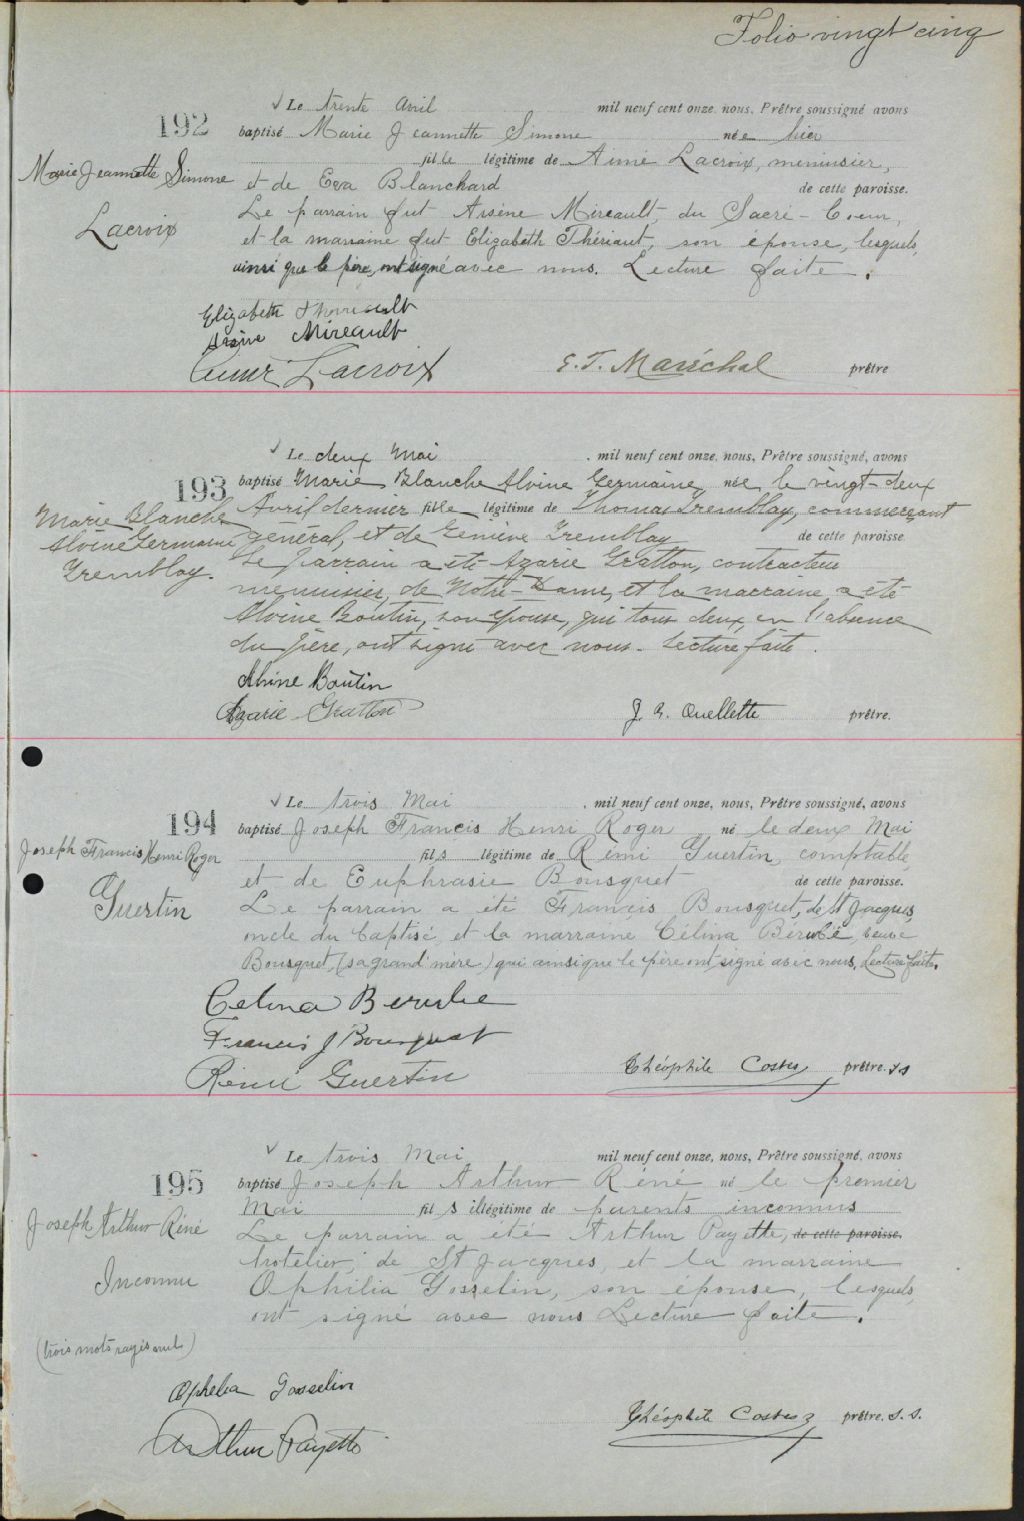 Folio vingt cinq
Le trente avril mil neuf cent onze, nous, Prêtre soussigné avons
192
baptisé Marie Jeannette Simone née hier
fille légitime de Aimé Lacroix, menuisier,
Marie Jeannette Simone
Lacroix
et de Eva Blanchard de cette paroisse.
Le parrain fut Arsène Mireault, du Sacré-Coeur,
et la marraine fut Elizabeth Thériaut, son épouse, lesquels,
ainsi que le père, ont signé avec nous. Lecture faite.
Elizabeth
Arsène Mireault
Lacroix
E. T. Maréchal prêtre
Le deux Mai mil neuf cent onze, nous, Prêtre soussigné, avons
193
baptisé Marie Blanche Alvine Germaine, née le vingt-deux
Avril dernier fille légitime de Thomas Tremblay, commerçant
Marie Blanche
Alvine Germaine
Tremblay.
général, et de Tremblay de cette paroisse
Le Parrain a été Azarie Gratton, contracteur
menuisier, de Notre-Dame, et la marraine a été
Alvine Boutin, son épouse, qui tous deux, en l'absence
du père, ont signé avec nous. Lecture faite.
Alvine Boutin
Azarie Gratton
J. A. Ouellette prêtre.
Le trois Mai mil neuf cent onze, nous, Prêtre soussigné, avons
194
baptisé Joseph Francis Henri Roger né le deux Mai
fils légitime de Rémi Guertin, comptable,
Joseph Francis Henri Roger
Guertin
et de Euphrasie Bousquet de cette paroisse.
Le parrain a été Francis Bousquet, de St Jacques,
oncle du baptisé, et la marraine Célina Bérubé, veuve
Bousquet, (sa grand'mère) qui ainsi que le père ont signé avec nous. Lecture faite.
Celina Berube
Francis J Bousquet
Rémi Guertin
Théophile prêtre. s.s
Le trois Mai mil neuf cent onze, nous, Prêtre soussigné, avons
195
baptisé Joseph Arthur Réné né le premier
Mai fils illégitime de parents inconnus
Joseph Arthur Réné
Inconnu
Le parrain a été Arthur Payette, de cette paroisse.
hotelier, de St Jacques, et la marraine
Ophilia Gosselin, son épouse, lesquels,
ont signé avec nous Lecture faite.
(trois mots rayés nuls)
Ophelia Gosselin
Arthur Payette
Théophile prêtre. s. s.